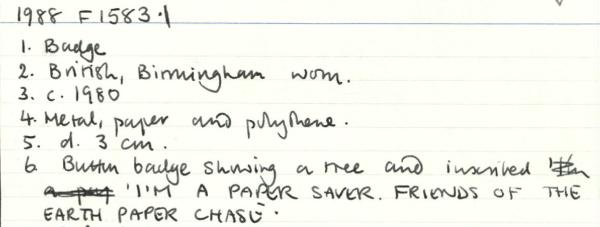 1988 F1583.1
1. Badge
2. British, Birmingham worn.
3. c. 1980
4. Metal, paper and polythene.
5. d. 3 cm.
6. Button badge showing a tree and inscribed
'I'M A PAPER SAVER. FRIENDS OF THE
EARTH PAPER CHASE'.